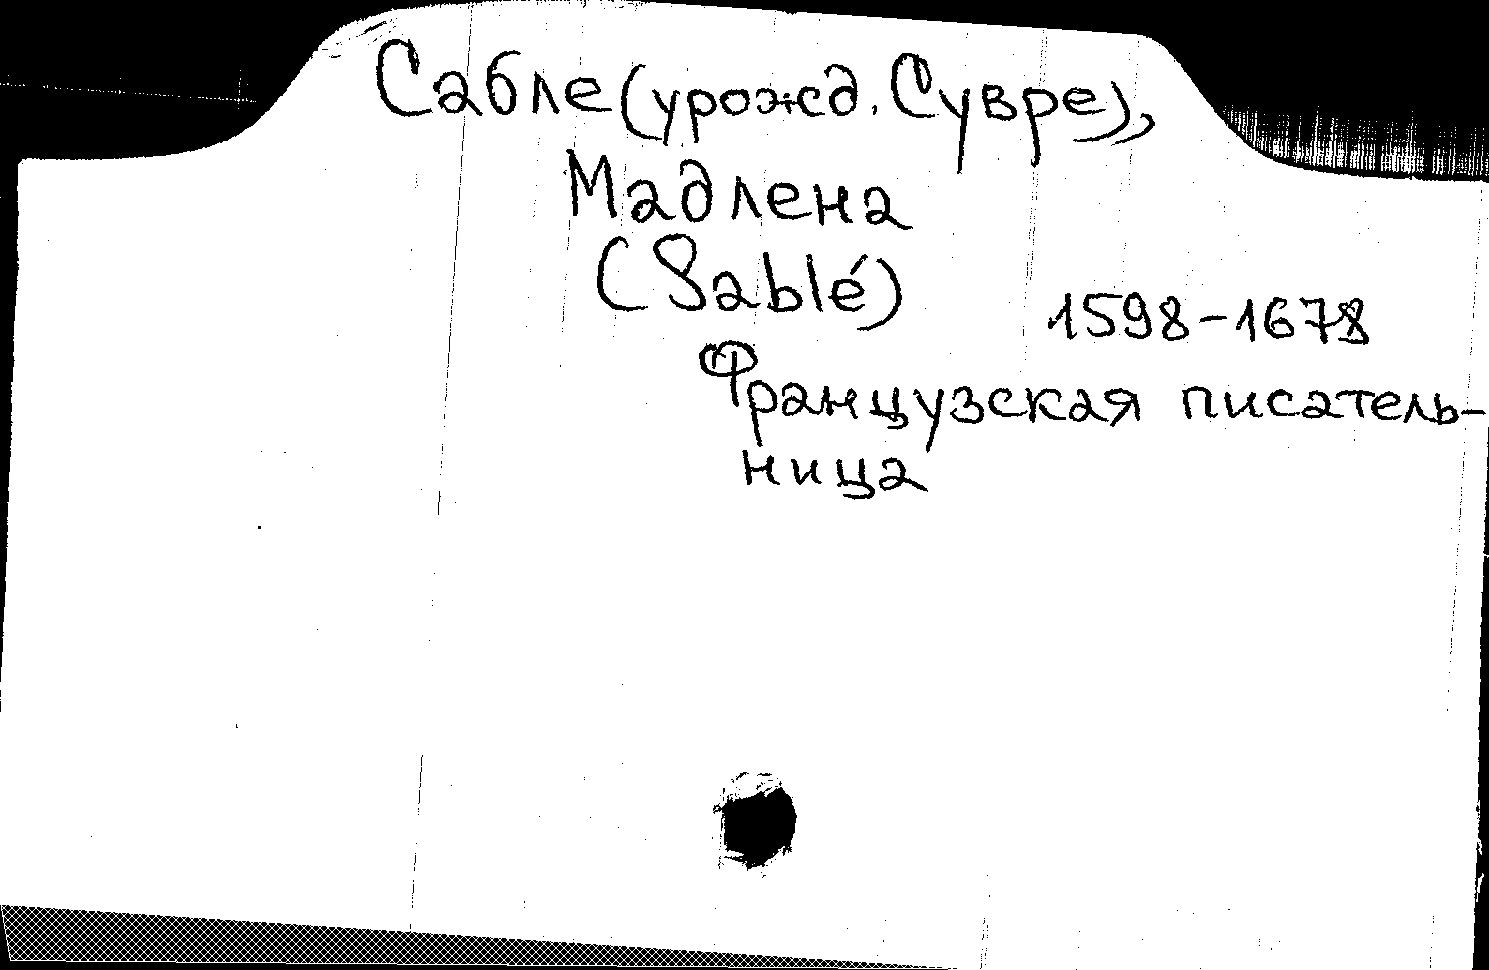 Сабле (урожд. Сувре),
Мадлена
(Sablé)
1598-1678
Французская писатель-
ница